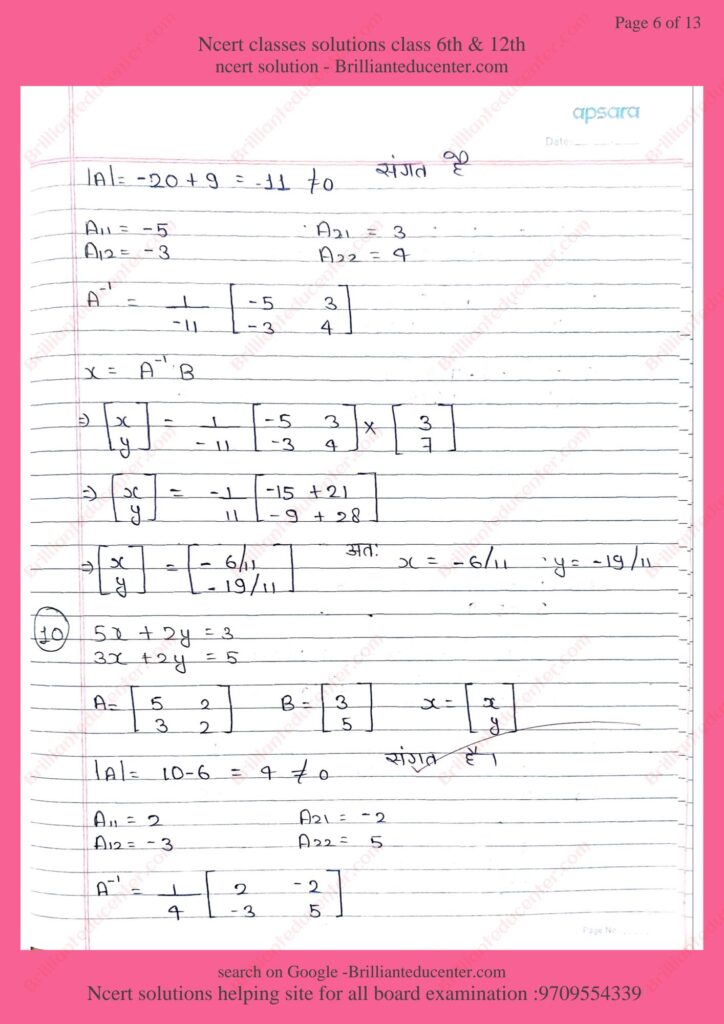 Page 6 of 13
Ncert classes solutions class 6th & 12th
ncert solution - Brillianteducenter.com
apsara
Date:
|A| = -20 + 9 = -11 ≠ 0 संगत है
A₁₁ = -5 A₂₁ = 3
A₁₂ = -3 A₂₂ = 4
A⁻¹ = 1/-11 [-5 3; -3 4]
x = A⁻¹ B
⇒ [x; y] = 1/-11 [-5 3; -3 4] × [3; 7]
⇒ [x; y] = -1/11 [-15 + 21; -9 + 28]
⇒ [x; y] = [-6/11; -19/11] अतः x = -6/11 y = -19/11
10 5x + 2y = 3
3x + 2y = 5
A = [5 2; 3 2] B = [3; 5] x = [x; y]
|A| = 10-6 = 4 ≠ 0 संगत है।
A₁₁ = 2 A₂₁ = -2
A₁₂ = -3 A₂₂ = 5
A⁻¹ = 1/4 [2 -2; -3 5]
Page No.
search on Google -Brillianteducenter.com
Ncert solutions helping site for all board examination :9709554339
Brillianteducenter.com